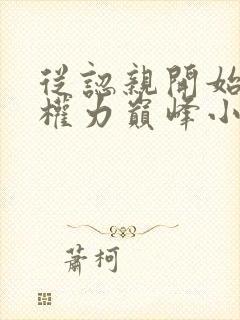 從認親開始
權力巔峰小
蕭柯